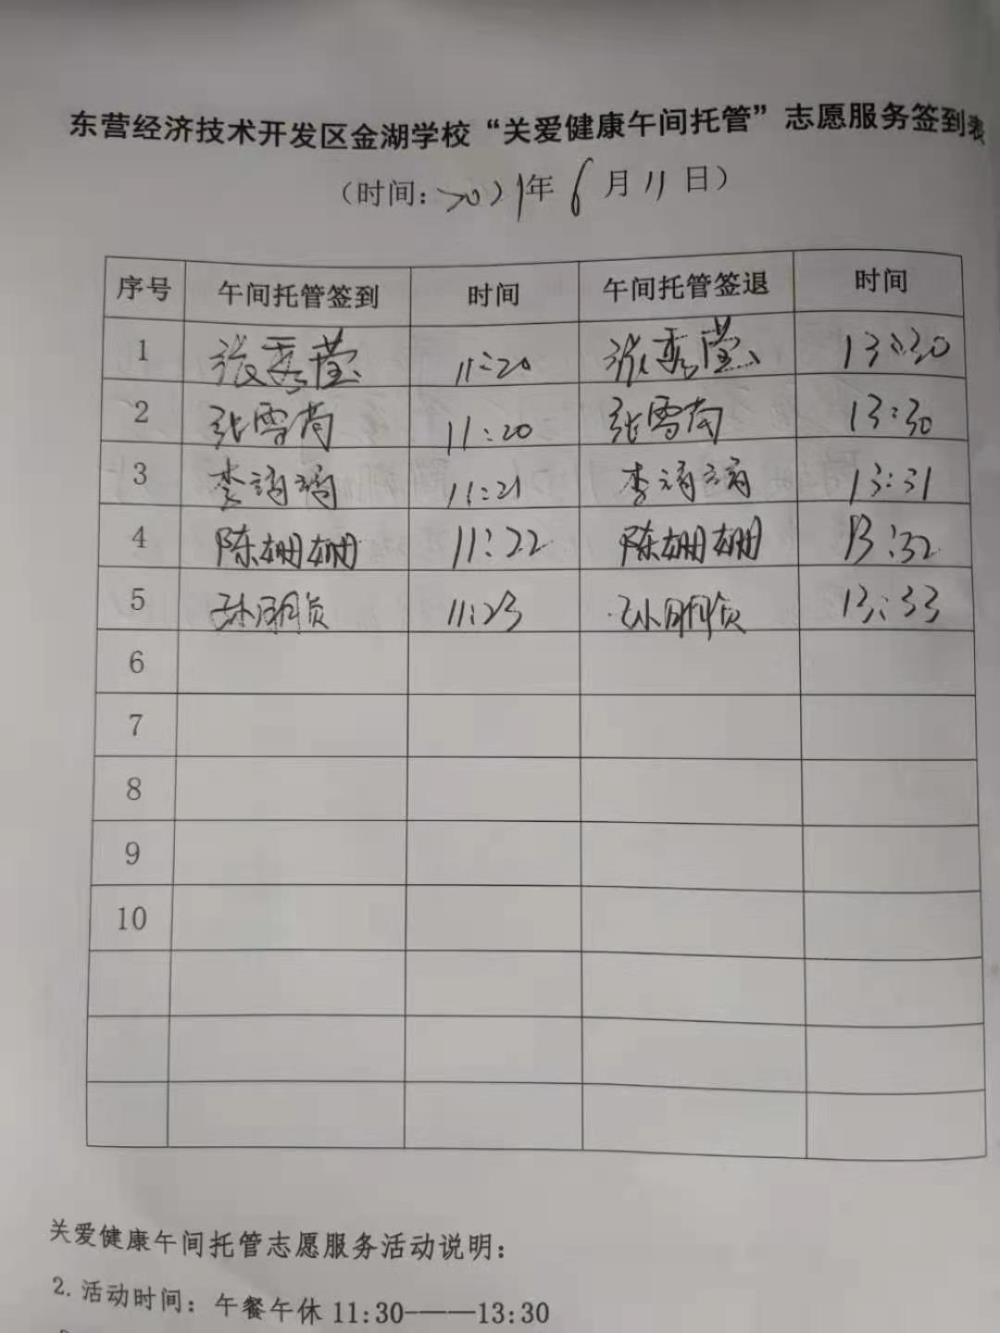 东营经济技术开发区金湖学校“关爱健康午间托管”志愿服务签到表
（时间：2021年6月11日）
序号 午间托管签到 时间 午间托管签退 时间
1 张秀莹 11:20 张秀莹 13:30
2 张雪芮 11:20 张雪芮 13:30
3 李 11:21 李 13:31
4 陈姗姗 11:22 陈姗姗 13:32
5 孙明贞 11:23 孙明贞 13:33
6
7
8
9
10
关爱健康午间托管志愿服务活动说明：
2. 活动时间：午餐午休 11:30——13:30